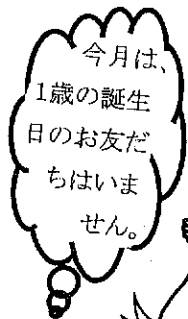 今月は、
1歳の誕生
日のお友だ
ちはいま
せん。